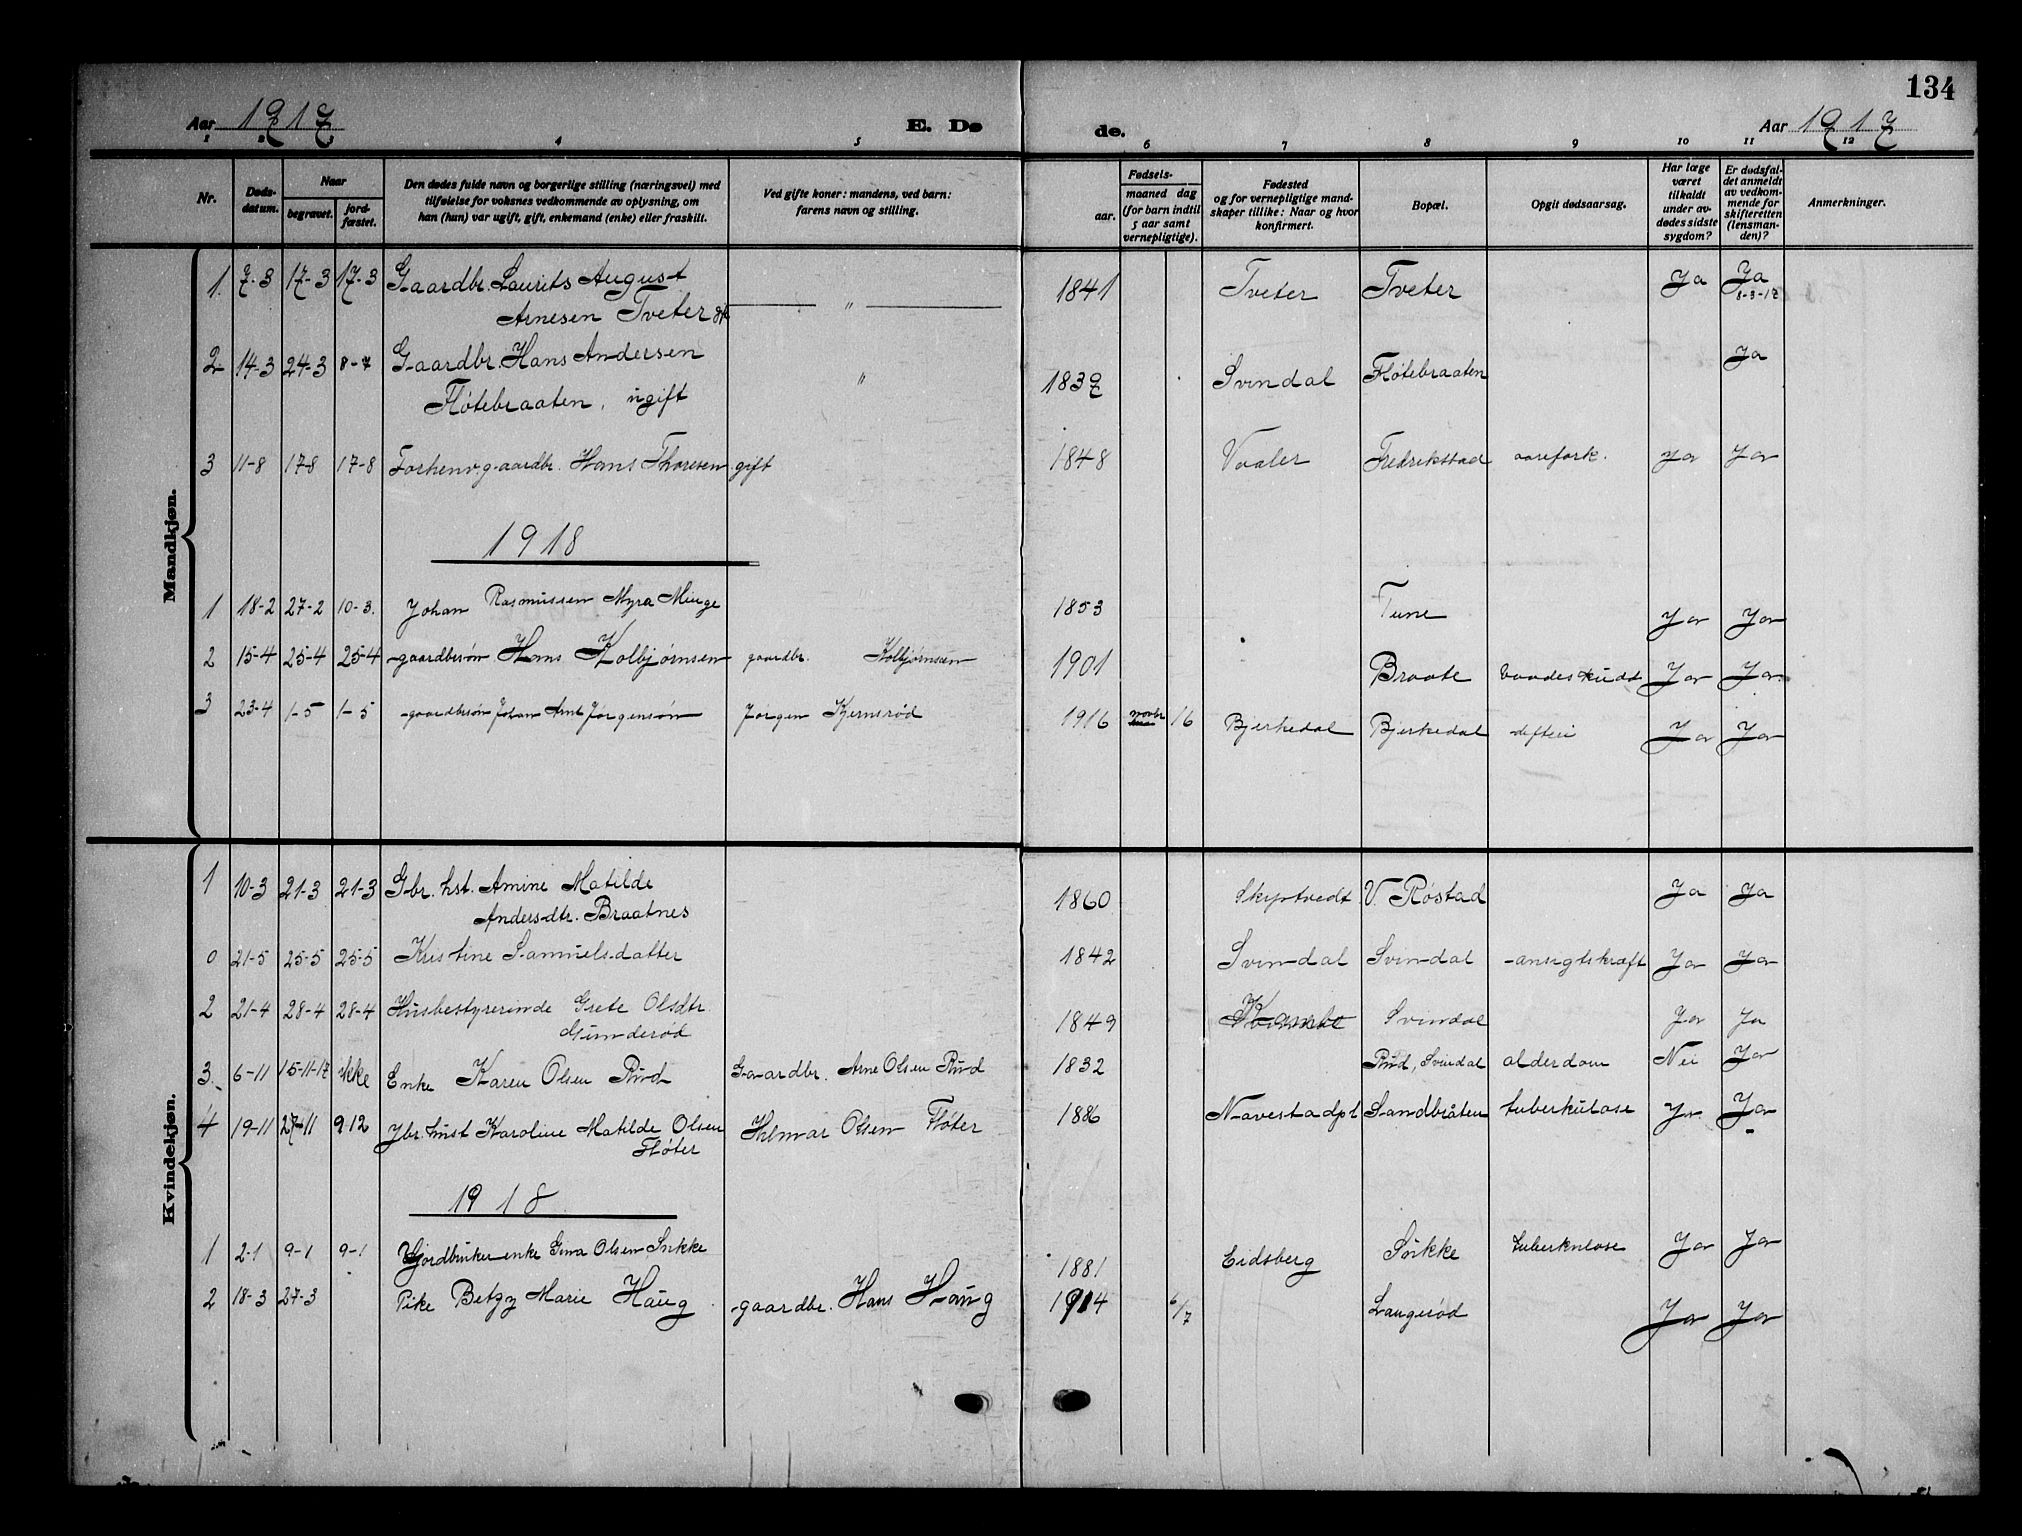 134
Aar 1917 E. Dø de. Aar 1917
1 2 3 4 5 6 7 8 9 10 11 12
Nr.
Døds-
datum.
Naar
begravet.
jord-
fæstet.
Den dødes fulde navn og borgerlige stilling (næringsvei) med
tilføielse for voksnes vedkommende av oplysning, om
han (hun) var ugift, gift, enkemand (enke) eller fraskilt.
Ved gifte koner: mandens, ved barn:
farens navn og stilling.
Fødsels-
aar.
maaned dag
(for barn indtil
5 aar samt
vernepligtige).
Fødested
og for vernepligtige mand-
skaper tillike: Naar og hvor
konfirmert.
Bopæl.
Opgit dødsaarsag.
Har læge
været
tilkaldt
under av-
dødes sidste
sygdom?
Er dødsfal-
det anmeldt
av vedkom-
mende for
skifteretten
(lensman-
den)?
Anmerkninger.
Mandkjøn.
1. 7-3 17-3 17-3 Gaardbr. Laurits August " 1841 Tveter Tveter Ja Ja
Arnesen Tveter gft 8-3-17
2 14-3 24-3 8-7 Gaardbr. Hans Andersen " 1839 Svindal Fløtebraaten Ja
Fløtebraaten, ugift
3 11-8 17-8 17-8 Forhenv. gaardbr. Hans Thoresen gift 1848 Vaaler Fredrikstad aarefork. Ja Ja
1918
1 18-2 27-2 10-3. Johan Rasmussen Myra Minge 1853 Tune Ja Ja
2 15-4 25-4 25-4 gaardbrsøn Hans Kolbjørnsen gaardbr. Kolbjørnsen 1901 Braate vaadeskudt Ja Ja
3 23-4 1-5 1-5 gaardbrsøn Johan Arnt Jørgensøn Jørgen Kjernsrød 1916 novbr 16 Bjerkedal Bjerkedal difteri Ja Ja
Kvindekjøn.
1 10-3 21-3 21-3 Gbr. hst. Amine Matilde 1860 Skiptvedt V. Røstad Ja Ja
Andersdtr. Braatnes
0 21-5 25-5 25-5 Kristine Samuelsdatter 1842 Svindal Svindal ansigtskræft Ja Ja
2 21-4 28-4 28-4 Husbestyrerinde Grete Olsdtr. 1849 Svindal Ja Ja
Gunderød
3. 6-11 15-11-17 ikke Enke Karen Olsen Rud Gaardbr. Arne Olsen Rud 1832 Rud, Svindal alderdom Nei Ja
4 19-11 27-11 9 12 Jbr. hust Karoline Matilde Olsen Hilmar Olsen Fløter 1886 Navestadpl Sandbråten tuberkulose Ja Ja
Fløter
1918
1 2-1 9-1 9-1 Gjordbruker enke Gina Olsen Sukke 1881 Eidsberg Sukke tuberkulose Ja Ja
2 18-3 27-3 Pike Betzy Marie Haug gaardbr. Hans Haug 1914 6/7 Langerød Ja Ja